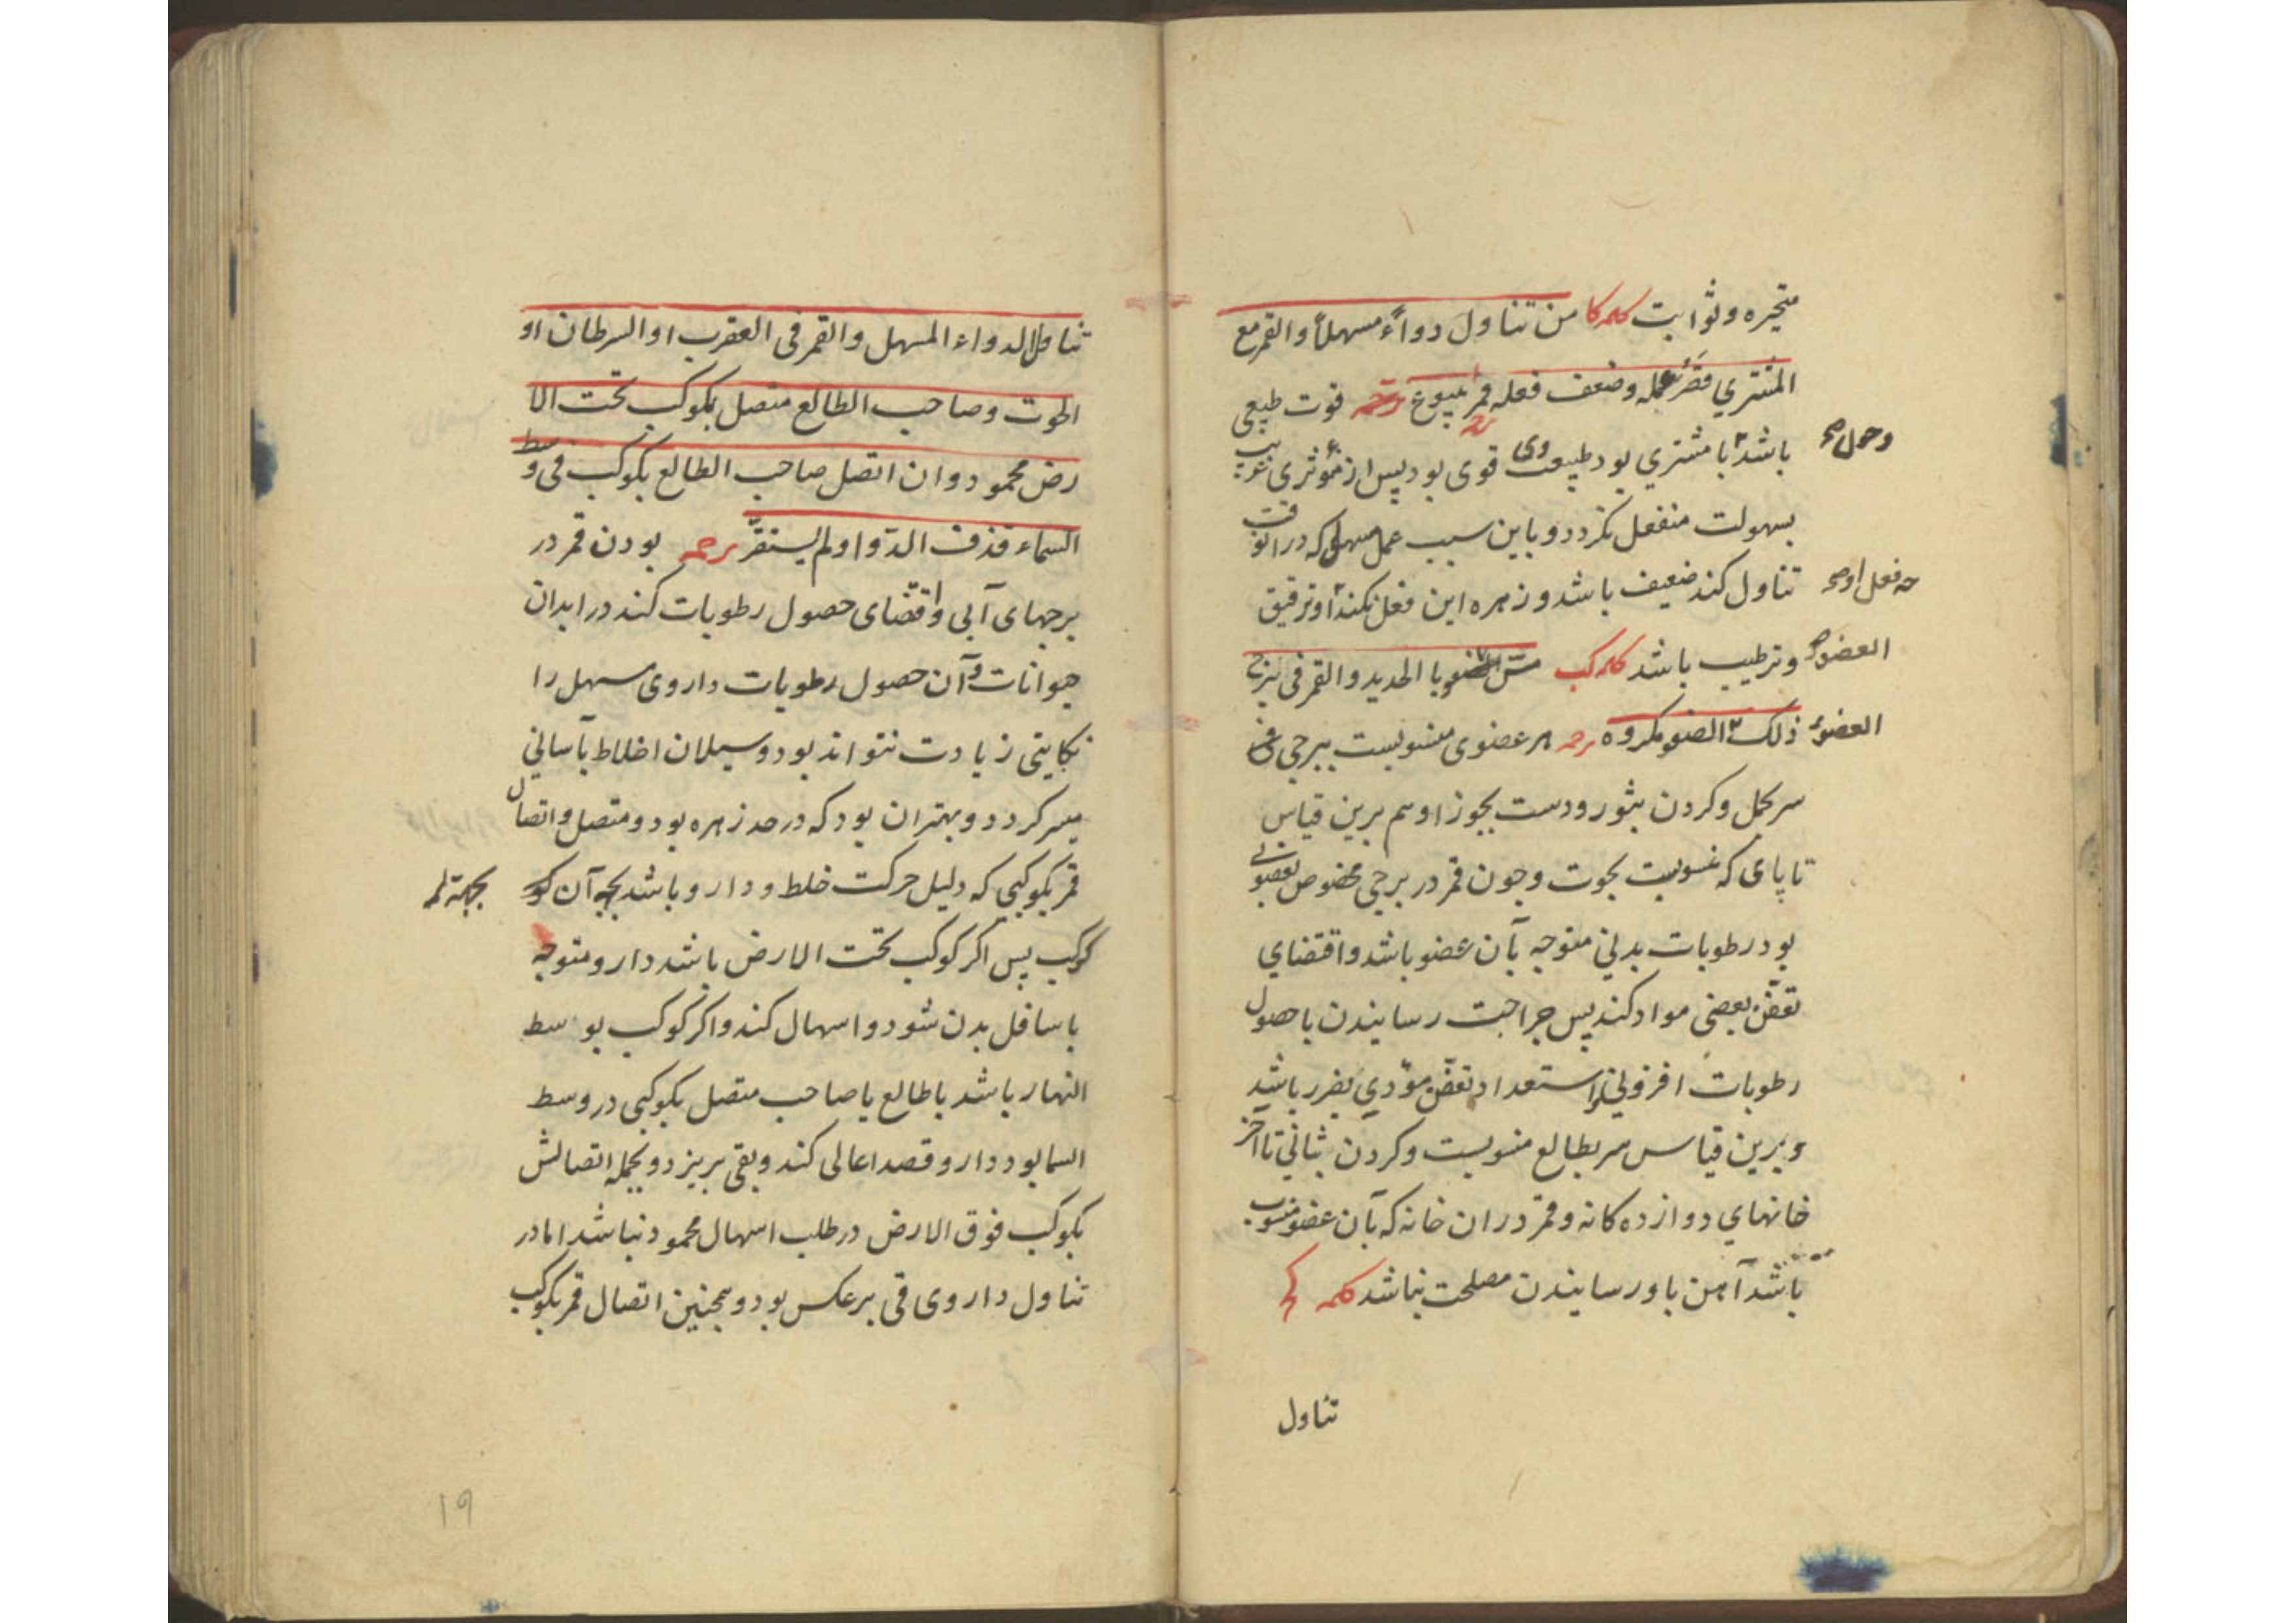 متحیره وثوابت کلمه کا من تناول دواءً مسهلاً والقمر مع
المشتری قصر عمله وضعف فعله قوت طبیعی
وحول صح
باشد با مشتری بود طبیعت وی قوی بود پس از مؤثری غریب
بسهولت منفعل نکردد وباین سبب عمل مسهل که دران وقت
تناول کند ضعیف باشد و زهره این فعل نکند او ترقیق
چه فعل او صح
وترطیب باشد کلمه کب مسّ العضو با الحدید والقمر فی برج
العضو صح
ذلک العضو مکروه ترجمه هر عضوی منسوبست ببرجی
العضو
سر بحمل وکردن بثور ودست بجوزا وهم برین قیاس
تا پای که منسوبست بحوت وچون قمر در برجی مخصوص بعضوی
بود رطوبات بدنی متوجه بآن عضو باشد واقتضای
تعفّن بعضی مواد کند پس جراحت رسانیدن با حصول
رطوبات افزونی واستعداد تعفّن مؤدی بضرر باشد
وبرین قیاس سر بطالع منسوبست وکردن بثانی تا آخر
خانهای دوازده کانه وقمر دران خانه که بآن عضو منسوب
باشد آهن باو رسانیدن مصلحت نباشد کلمه کج
تناول
تناول الدواء المسهل والقمر فی العقرب او السرطان او
الحوت وصاحب الطالع متصل بکوکب تحت الا
رض محمود وان اتصل صاحب الطالع بکوکب فی وسط
السماء قذف الدّوا ولم یستقرّ ترجمه بودن قمر در
برجهای آبی واقتضای حصول رطوبات کند در ابدان
حیوانات وآن حصول رطوبات داروی مسهل را
نکایتی زیادت نتواند بود وسیلان اخلاط بآسانی
میسر کردد وبهتران بود که در حد زهره بود ومتصل واتصال
قمر بکوکبی که دلیل حرکت خلط ودارو باشد بجه آن کو
بجهة
کوکب پس اکر کوکب تحت الارض باشد دارو متوجه
باسافل بدن شود واسهال کند واکر کوکب بوسط
النهار باشد یا طالع یا صاحب متصل بکوکبی در وسط
السما بود دارو قصد اعالی کند وبقی بریزد وبجمله اتصالش
بکوکب فوق الارض در طلب اسهال محمود نباشد اما در
تناول داروی قی برعکس بود وهمچنین اتصال قمر بکوکب
۱۹